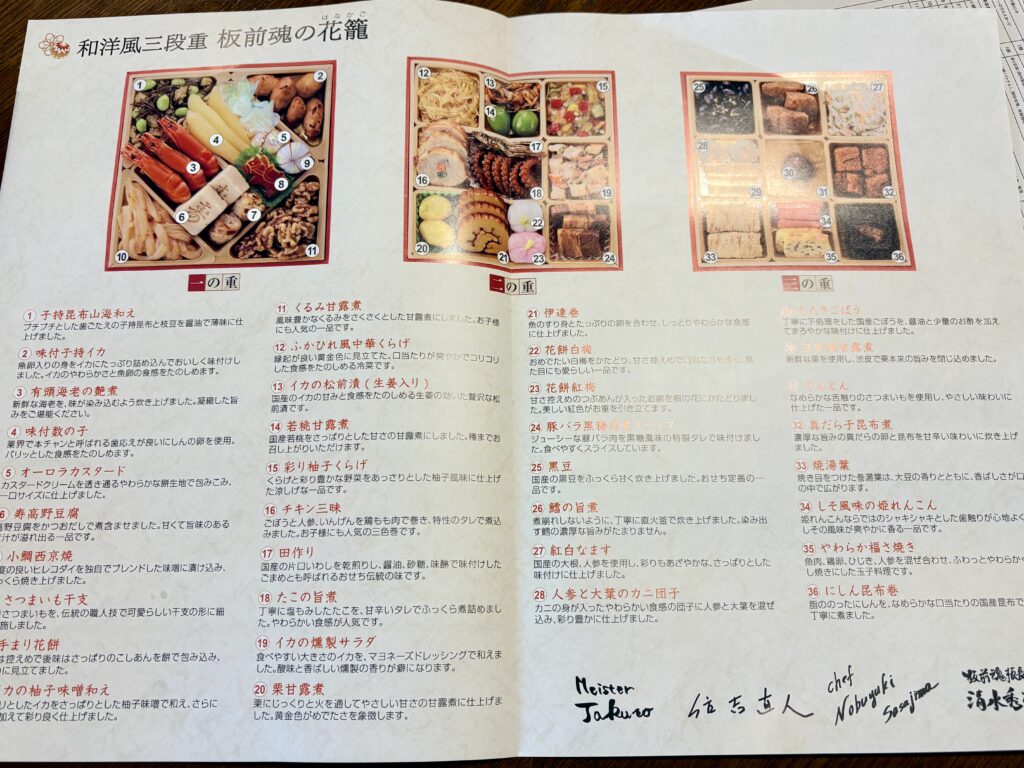 和洋風三段重 板前魂の花籠
はなかご
一の重
二の重
三の重
① 子持昆布山海和え
プチプチとした歯ごたえの子持昆布と枝豆を醤油で薄味に仕
上げました。
② 味付子持イカ
魚卵入りの身をイカにたっぷり詰め込んでおいしく味付けし
ました。イカのやわらかさと魚卵の食感をたのしめます。
③ 有頭海老の艶煮
新鮮な海老を、味が染み込むよう炊き上げました。凝縮した旨
みをご堪能ください。
④ 味付数の子
業界で本チャンと呼ばれる歯応えが良いにしんの卵を使用。
パリッとした食感をたのしめます。
⑤ オーロラカスタード
カスタードクリームを透き通るやわらかな餅生地で包みこみ、
一口サイズに仕上げました。
⑥ 寿高野豆腐
高野豆腐をかつおだしで煮含ませました。甘くて旨味のある
汁が溢れ出る一品です。
小鯛西京焼
度の良いヒレコダイを独自でブレンドした味噌に漬け込み、
っくら焼き上げました。
さつまいも干支
さつまいもを、伝統の職人技で可愛らしい干支の形に細
施しました。
手まり花餅
は控えめで後味はさっぱりのこしあんを餅で包み込み、
に見立てました。
イカの柚子味噌和え
リとしたイカをさっぱりとした柚子味噌で和え、さらに
加えて彩り良く仕上げました。
⑪ くるみ甘露煮
風味豊かなくるみをさくさくとした甘露煮にしました。お子様
にも人気の一品です。
⑫ ふかひれ風中華くらげ
縁起が良い黄金色に見立てた、口当たりが爽やかでコリコリ
した食感をたのしめる冷菜です。
⑬ イカの松前漬（生姜入り）
国産のイカの甘みと食感をたのしめる生姜の効いた贅沢な松
前漬です。
⑭ 若桃甘露煮
国産若桃をさっぱりとした甘さの甘露煮にしました。種までお
召し上がりいただけます。
⑮ 彩り柚子くらげ
くらげと彩り豊かな野菜をあっさりとした柚子風味に仕立て
た涼しげな一品です。
⑯ チキン三昧
ごぼうと人参、いんげんを鶏もも肉で巻き、特性のタレで煮込
みました。お子様にも人気の三色巻です。
⑰ 田作り
国産の片口いわしを乾煎りし、醤油、砂糖、味醂で味付けした
ごまめとも呼ばれるおせち伝統の味です。
⑱ たこの旨煮
丁寧に塩もみしたたこを、甘辛いタレでふっくら煮詰めまし
た。やわらかい食感が人気です。
⑲ イカの燻製サラダ
食べやすい大きさのイカを、マヨネーズドレッシングで和えま
した。酸味と香ばしい燻製の香りが癖になります。
⑳ 栗甘露煮
栗にじっくりと火を通してやさしい甘さの甘露煮に仕上げま
した。黄金色がめでたさを象徴します。
㉑ 伊達巻
魚のすり身とたっぷりの卵を合わせ、しっとりやわらかな食感
に仕上げました。
㉒ 花餅白梅
おめでたい白梅をかたどり、甘さ控えめで口当たりも良く、見
た目にも愛らしい一品です。
㉓ 花餅紅梅
甘さ控えめのつぶあんが入ったお餅を梅の花にかたどりまし
た。美しい紅色がお重を引き立てます。
㉔ 豚バラ黒糖
ジューシーな豚バラ肉を黒糖風味の特製タレで味付けまし
た。食べやすくスライスしています。
㉕ 黒豆
国産の黒豆をふっくら甘く炊き上げました。おせち定番の一
品です。
㉖ 鱈の旨煮
煮崩れしないように、丁寧に直火釜で炊き上げました。染み出
す鱈の濃厚な旨みがたまりません。
㉗ 紅白なます
国産の大根、人参を使用し、彩りもあざやかな、さっぱりとした
味付けに仕上げました。
㉘ 人参と大葉のカニ団子
カニの身が入ったやわらかい食感の団子に人参と大葉を混ぜ
込み、彩り豊かに仕上げました。
たたきごぼう
丁寧に下処理をした国産ごぼうを、醤油と少量のお酢を加え
てまろやかな味付けに仕上げました。
甘露煮
新鮮な栗を使用し、渋皮で栗本来の旨みを閉じ込めました。
きんとん
なめらかな舌触りのさつまいもを使用し、やさしい味わいに
仕上げた一品です。
㉜ 真だら子昆布煮
濃厚な旨みの真だらの卵と昆布を甘辛い味わいに炊き上げ
ました。
㉝ 焼湯葉
焼き目をつけた巻湯葉は、大豆の香りとともに、香ばしさが口
の中で広がります。
㉞ しそ風味の姫れんこん
姫れんこんならではのシャキシャキとした歯触りが心地よく
しその風味が爽やかに香る一品です。
㉟ やわらか福さ焼き
魚肉、鶏卵、ひじき、人参を混ぜ合わせ、ふわっとやわらか
し焼きにした玉子料理です。
㊱ にしん昆布巻
脂ののったにしんを、なめらかな口当たりの国産昆布で
丁寧に煮ました。
Meister
Takuro
chef
Nobuyuki
Sasajima